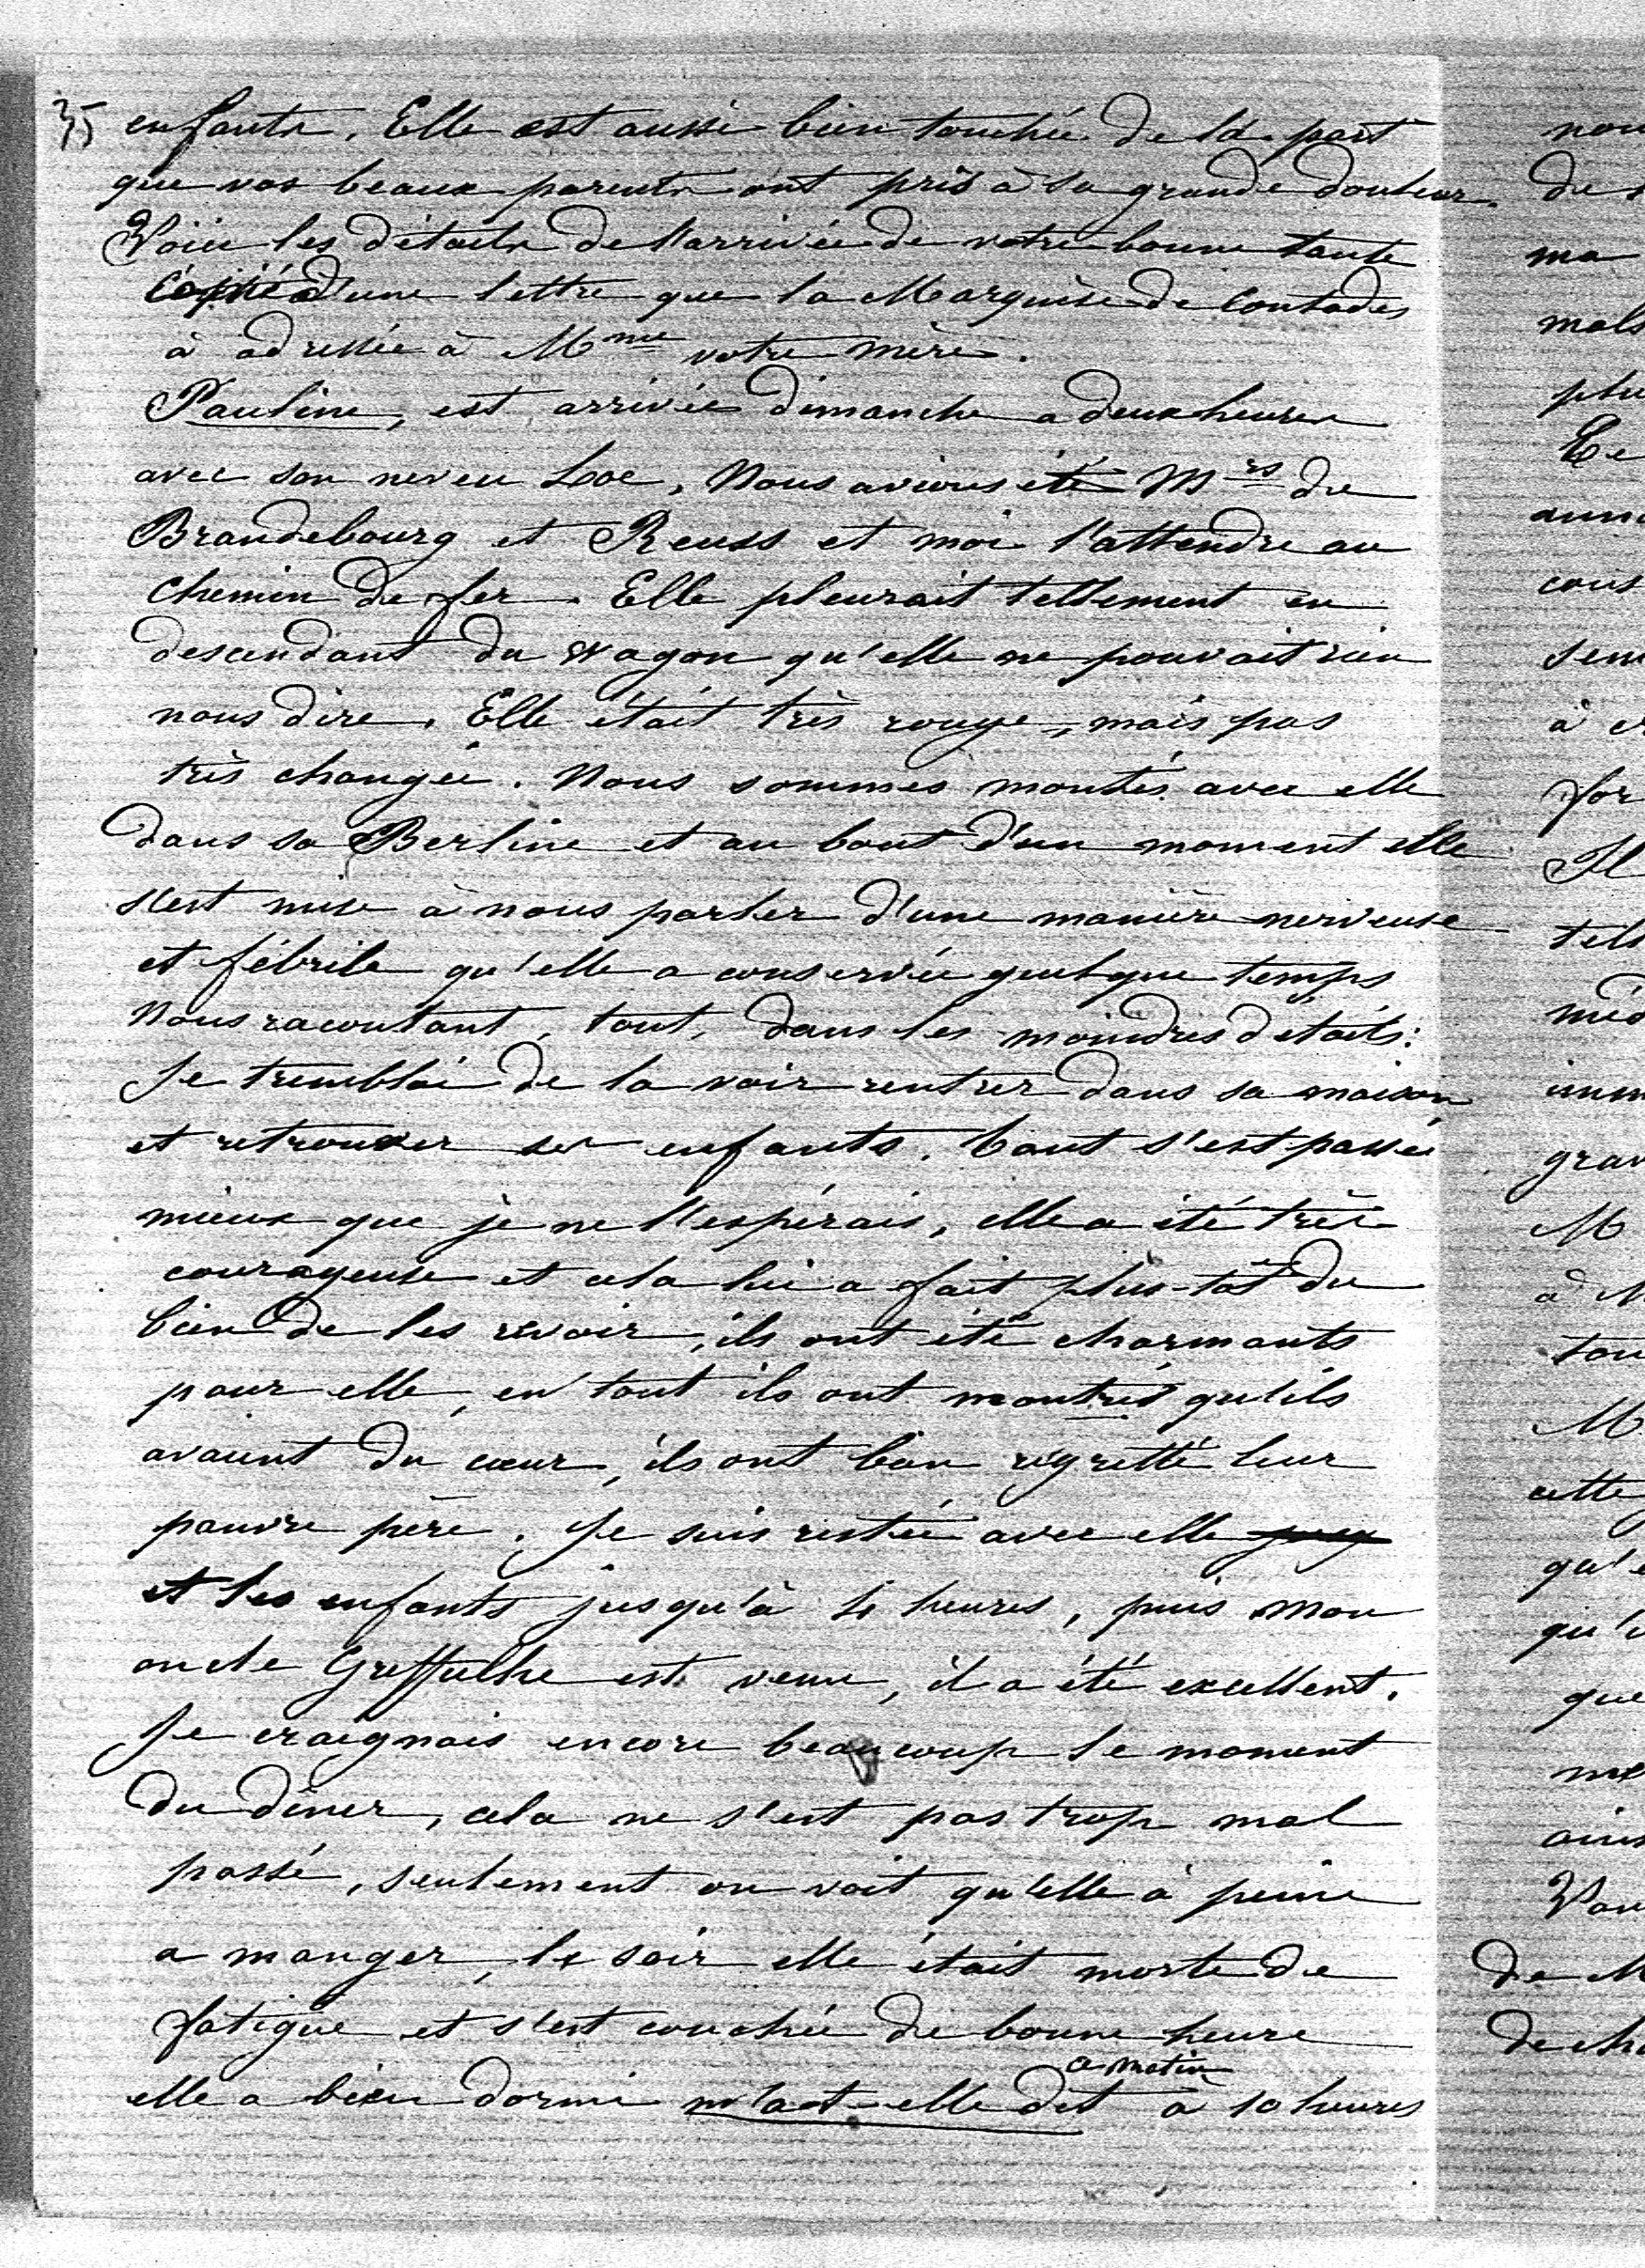 35 enfants. Elle est aussi bien touchée de la part
que vos beaux parents ont pris à sa grande douleur.
Voici les détails de l'arrivée de votre bonne tante
Copié d'une lettre que la Marquise de Contades
à adressée à Mme votre mère.
Pauline, est arrivée dimanche a deux heures
avec son neveu Loc, Nous avions été Mrs de
Brandebourg et Reuss et moi l'attendre au
Chemin de fer. Elle pleurait tellement en
descendant du wagon qu'elle ne pouvait rien
nous dire. Elle était très rouge, mais pas
très changée. Nous sommes montés avec elle
dans sa Berline et au bout d'un moment elle
s'est mise à nous parler d'une manière nerveuse
et fébrile qu'elle a conservée quelque temps
Nous racontant, tout, dans les moindres détails:
Je tremblai de la voir rentrer dans sa maison
et retrouver ses enfants. Tout s'est passée
mieux que je ne l'espérais, elle a été très
courageuse et cela lui a fait plus-tôt du
bien de les revoir, ils ont été charmants
pour elle, en tout ils ont montré qu'ils
avaient du cœur, ils ont bien regretté leur
pauvre père. Je suis restée avec elle
et les enfants jusqu'à 4 heures, puis mon
oncle Greffulhe est venu, il a été excellent.
Je craignais encore beaucoup le moment
du dîner, cela ne s'est pas trop mal
passé, seulement on voit qu'elle à peine
a manger, le soir elle était morte de
fatigue et s'est couchée de bonne heure
ce matin
elle a bien dormi m'a-t-elle dit à 10 heures